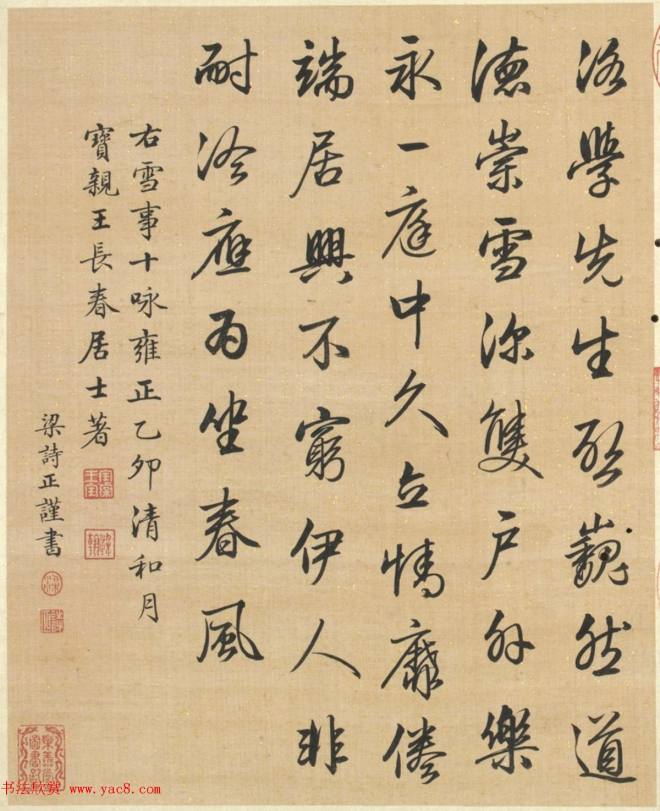 洛學先生巍然道
德崇雪深雙戶外樂
永一庭中久立情靡倦
端居興不窮伊人非
耐冷應為坐春風
右雪事十咏雍正乙卯清和月
寶親王長春居士著
梁詩正謹書
书法欣赏 www.yac8.com